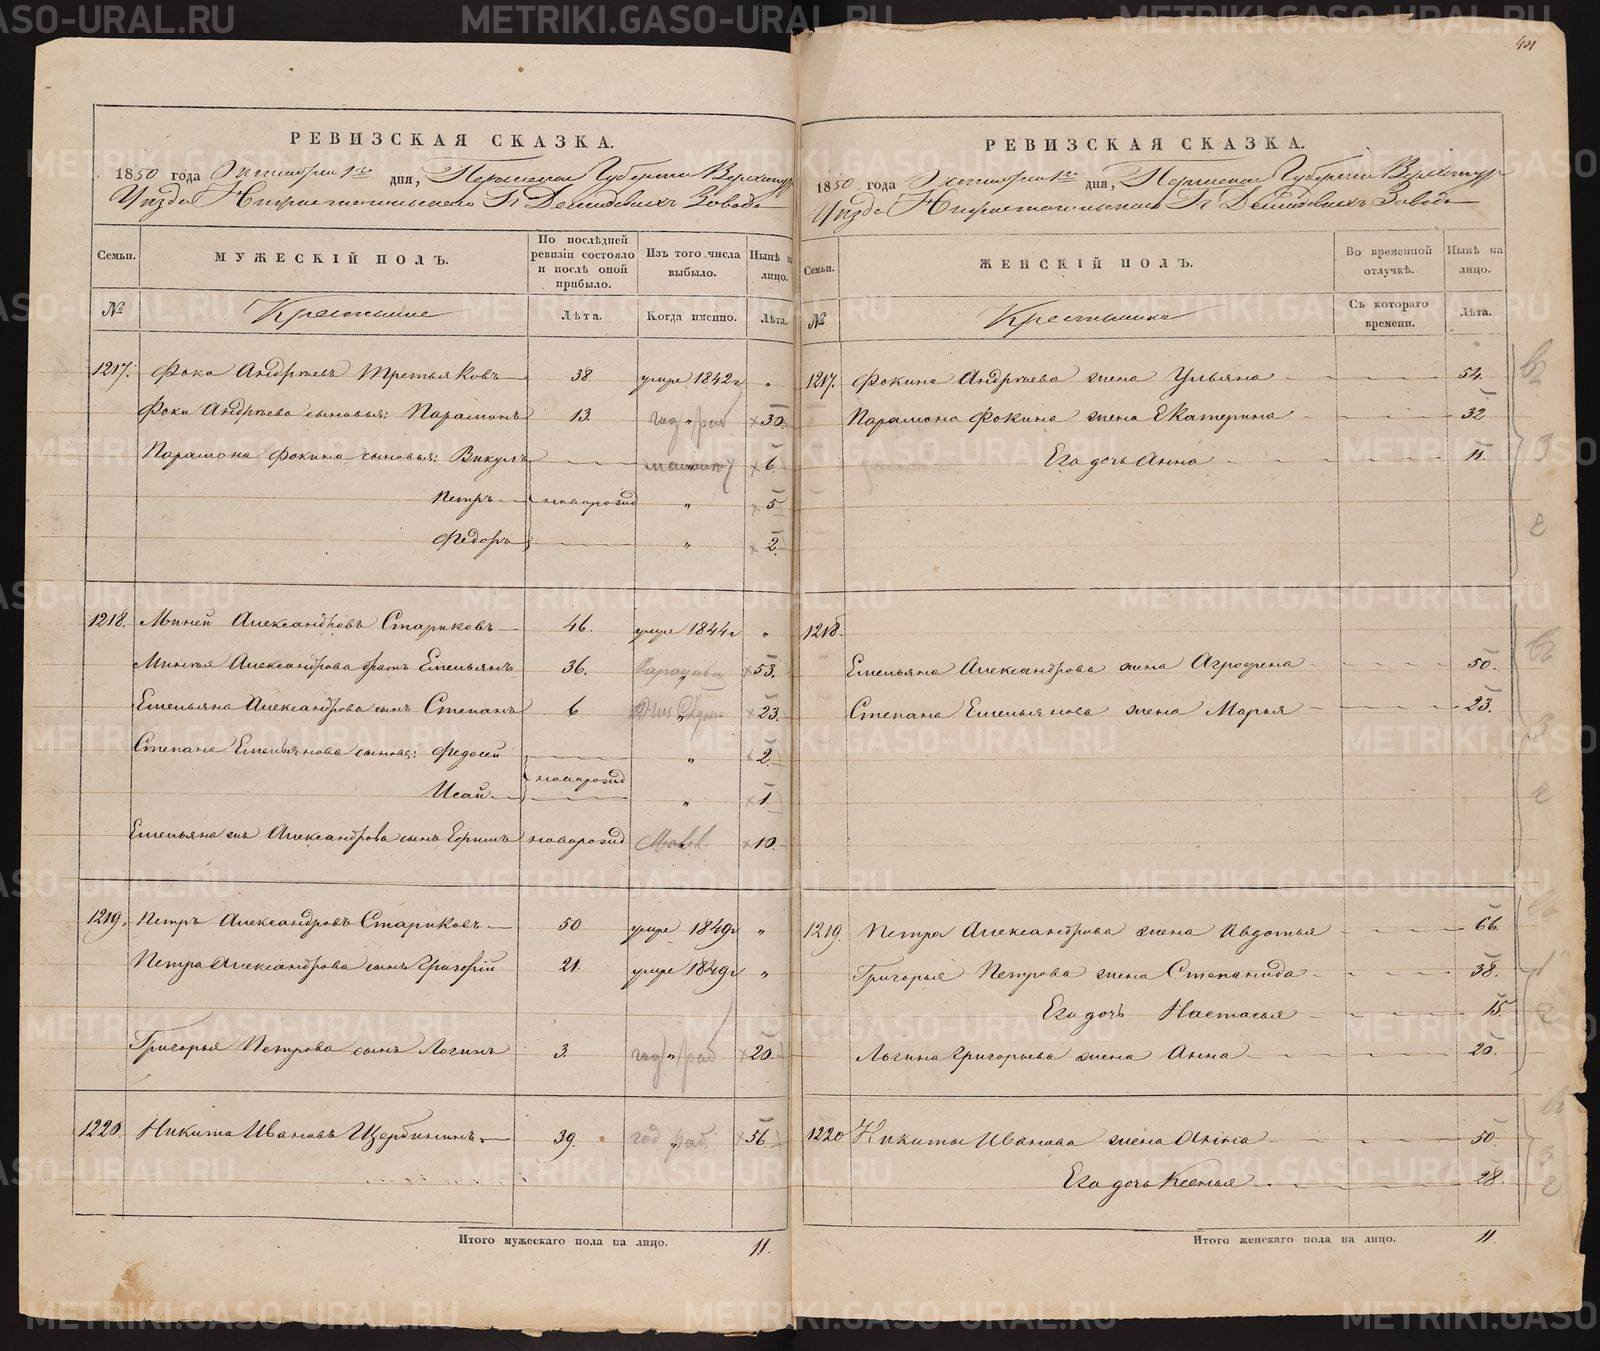 401
РЕВИЗСКАЯ СКАЗКА.
1850 года Октября 1го дня, Пермской Губернiи Верхотур
Уѣзда Нижнетагильскаго Гг Демидовыхъ Завода
Семьи.
МУЖЕСКIЙ ПОЛЪ.
По послѣдней ревизiи состояло и послѣ оной прибыло.
Изъ того числа выбыло.
Нынѣ н лицо.
№
Крестьяне
Лѣта.
Когда именно.
Лѣта.
1217. Фока Андреевъ Третьяковъ 38. умре 1842г "
Фоки Андреева сыновья: Парамонъ 13. " 30.
Парамона Фокина сыновья: Викулъ " 6
Петръ новорожд " 5
Федоръ " 2.
1218. Миней Александровъ Стариковъ 46. умре 1844г "
Минея Александрова братъ Емельянъ 36. " 53.
Емельяна Александрова сынъ Степанъ 6 " 23.
Степана Емельянова сыновья: Федосей " 2.
новорожд
Исай " 1
Емельяна же Александрова сынъ Ефимъ новорожд 10.
1219. Петръ Александровъ Стариковъ 50 умре 1849г "
Петра Александрова сынъ Григорiй 21. умре 1849г "
Григорья Петрова сынъ Логинъ 3. " 20.
1220. Никита Ивановъ Щербининъ 39. " 56.
Итого мужескаго пола на лицо. 11.
РЕВИЗСКАЯ СКАЗКА.
1850 года Октября 1го дня, Пермской Губернiи Верхотур
Уѣзда Нижнетагильскаго Гг Демидовыхъ Завода
Семьи.
ЖЕНСКIЙ ПОЛЪ.
Во временной отлучкѣ.
Нынѣ на лицо.
№
Крестьянки
Съ котораго времени.
Лѣта.
1217. Фокина Андреева жена Ульяна 54.
Парамона Фокина жена Екатерина 32
Его дочь Анна 11.
1218.
Емельяна Александрова жена Агрофена 50.
Степана Емельянова жена Марья 23.
1219. Петра Александрова жена Авдотья 66.
Григорья Петрова жена Степанида 38.
Его дочь Настасья 15.
Логина Григорьева жена Анна 20.
1220 Никиты Иванова жена Анна 50.
Его дочь Ксенья 28.
Итого женскаго пола на лицо. 11.
METRIKI.GASO-URAL.RU